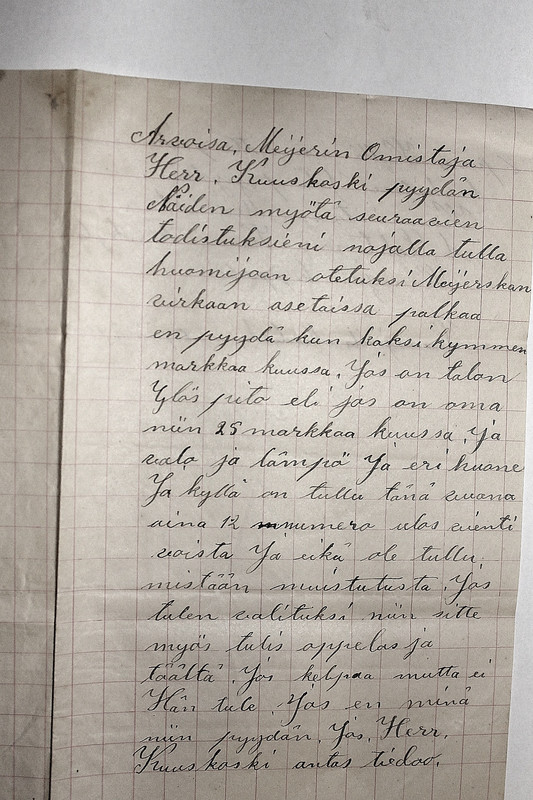 Arvoisa, Meijerin Omistaja
Herr. Kuuskoski pyydän
Näiden myötä seuraavien
todistuksieni nojalla tulla
huomijoan otetuksi Meijerskan
virkaan asetaissa palkaa
en pyydä kun kaksikymmen
markkaa kuussa. Jos on talon
Ylös pito eli jos on oma
niin 25 markkaa kuussa. Ja
valo ja lämpö Ja eri huone
Ja kyllä on tullu tänä vuona
aina 12 numero ulos vienti
voista Ja eikä ole tullu
mistään muistutusta. Jos
tulen valituksi niin sitte
myös tulis oppelas ja
täältä. Jos kelpaa mutta ei
Hän tule. Jos en minä
niin pyydän. Jos. Herr.
Kuuskoski antas tiedoo.